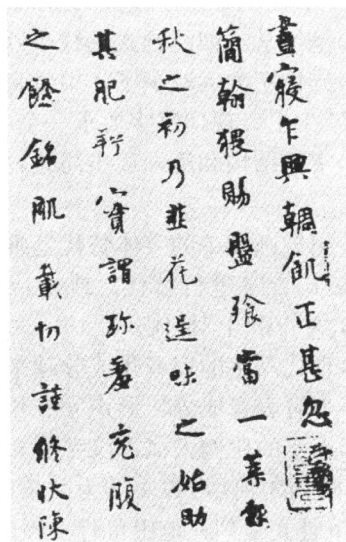 晝寢乍興輖飢正甚忽
簡翰猥賜盤飧當一葉報
秋之初乃韭花逞味之始助
其肥羜實謂珍羞充腹
之餘銘肌載切謹修狀陳